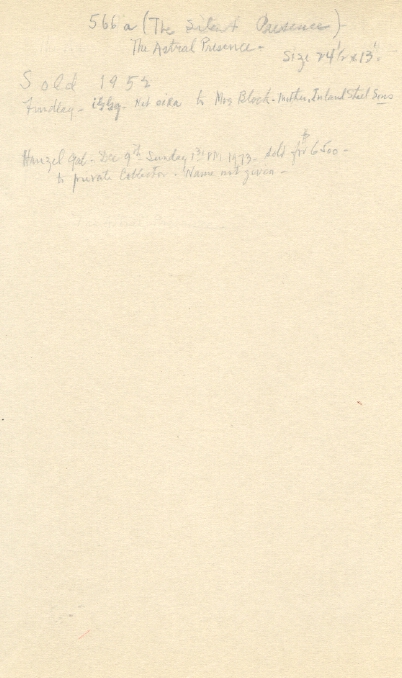 566a (The Silent Presence)-
The Astral Presence -
Size 24½ x 13"
Sold 1952
Findlay - Net to Mrs Block - mother, Inland Steel Sons
Hanzel Gal - Dec 9th Sunday 1:30 PM 1973 - sold for $6500 -
to private Collector - Name not given -